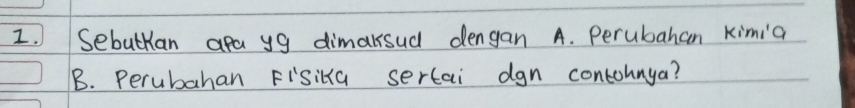 1. Sebutkan apa yg dimaksud dengan A. Perubahan kimia
B. Perubahan Fisika sertai dgn contohnya?